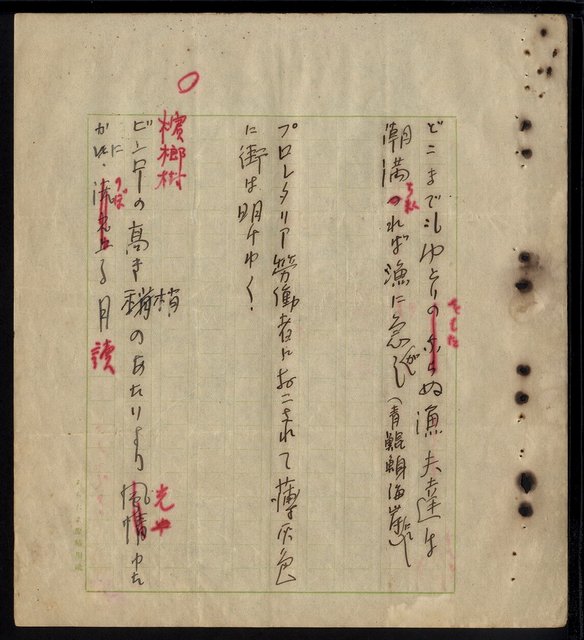 どこまでもゆとりのあらぬ漁夫達は
もたぬ
潮満つれば漁に急ぐ（青鯤鯓海岸にて）
プロレタリア労働者におこされて薄灰色
に街は明けゆく。
檳榔樹
ビンロー の高き梢のあたりより風情ゆた
光や
かに、流れ出る月
のぼ
讀